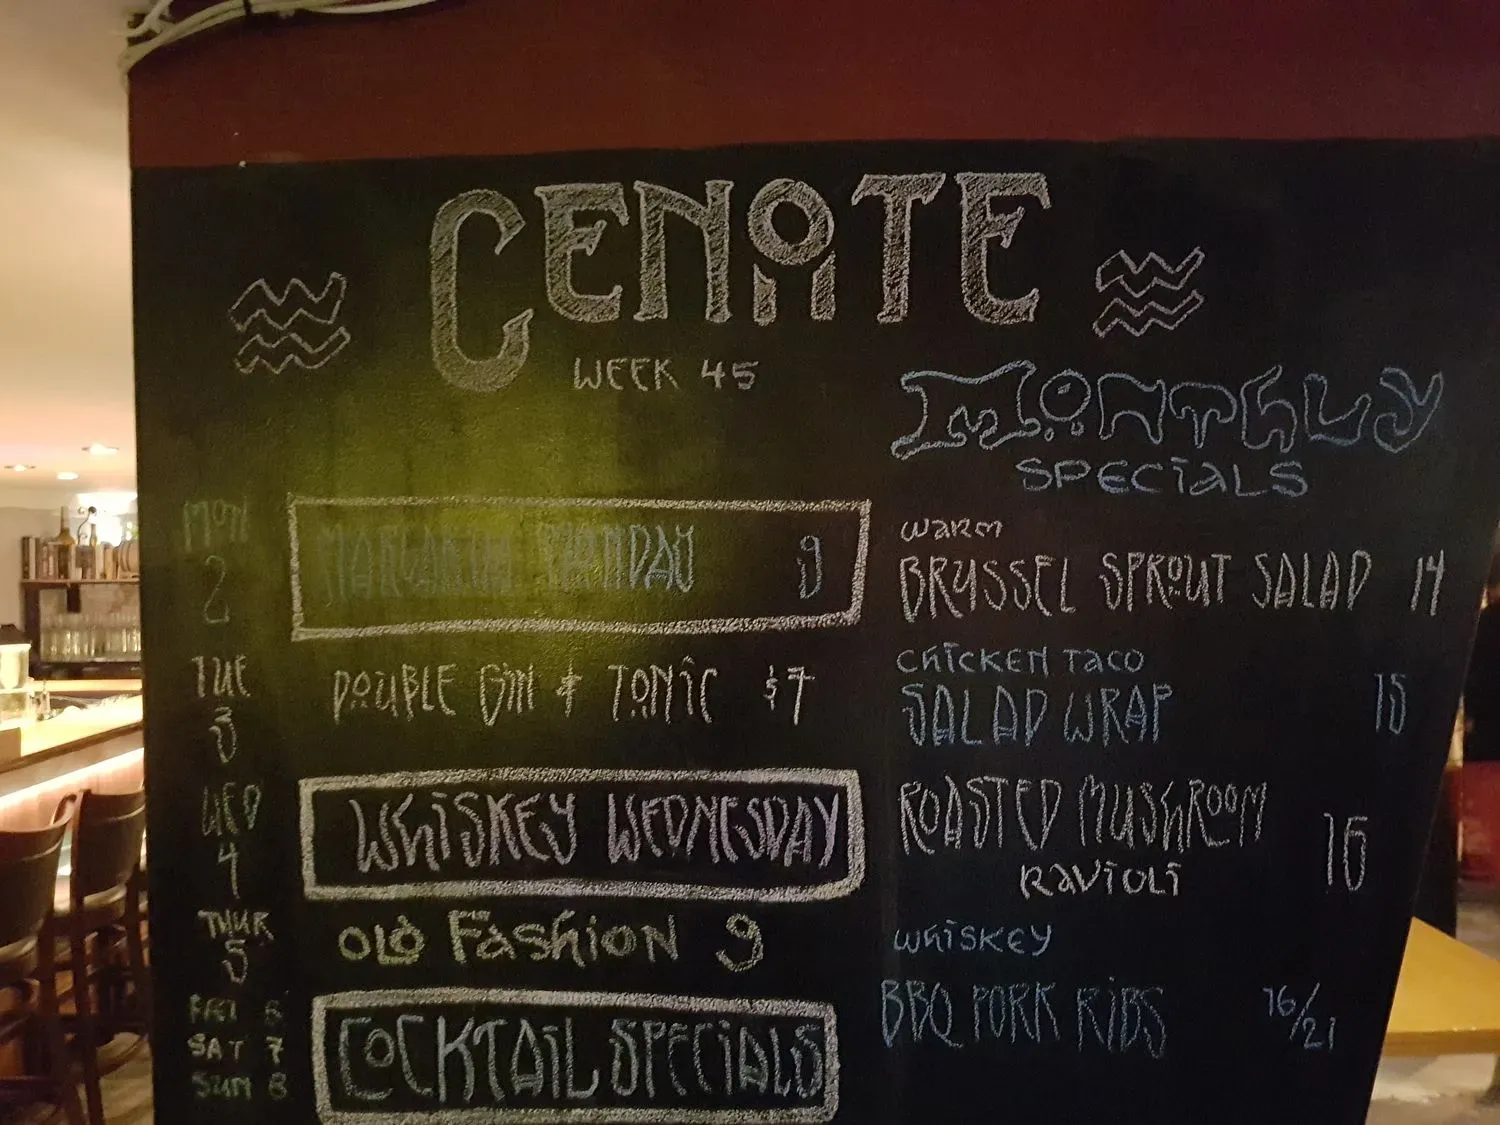 CENOTE
WEEK 45
MON
2
MARGARITA MONDAY 9
TUE
3
DOUBLE GIN & TONIC $7
WED
4
WHISKEY WEDNESDAY
THUR
5
OLD FASHION 9
FRI 6
SAT 7
SUN 8
COCKTAIL SPECIALS
MONTHLY
SPECIALS
WARM
BRUSSEL SPROUT SALAD 14
CHICKEN TACO
SALAD WRAP 15
ROASTED MUSHROOM
RAVIOLI 16
WHISKEY
BBQ PORK RIBS 16/21